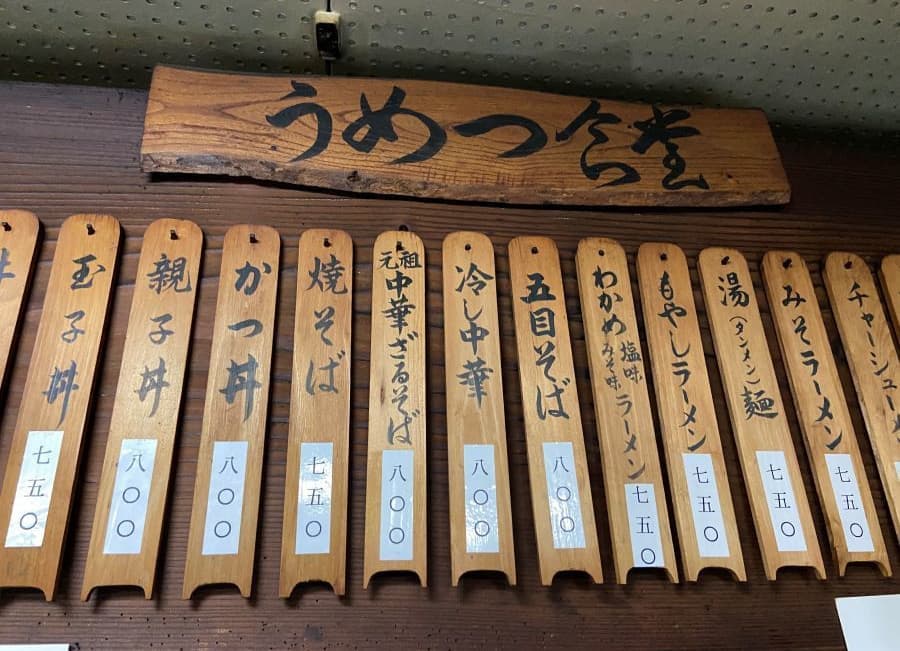 うめつ食堂
チャーシューメ
みそラーメン
七五〇
湯(タンメン)麺
七五〇
もやしラーメン
七五〇
わかめ塩味みそ味ラーメン
七五〇
五目そば
八〇〇
冷し中華
八〇〇
元祖中華ざるそば
八〇〇
焼そば
七五〇
かつ丼
八〇〇
親子丼
八〇〇
玉子丼
七五〇
丼